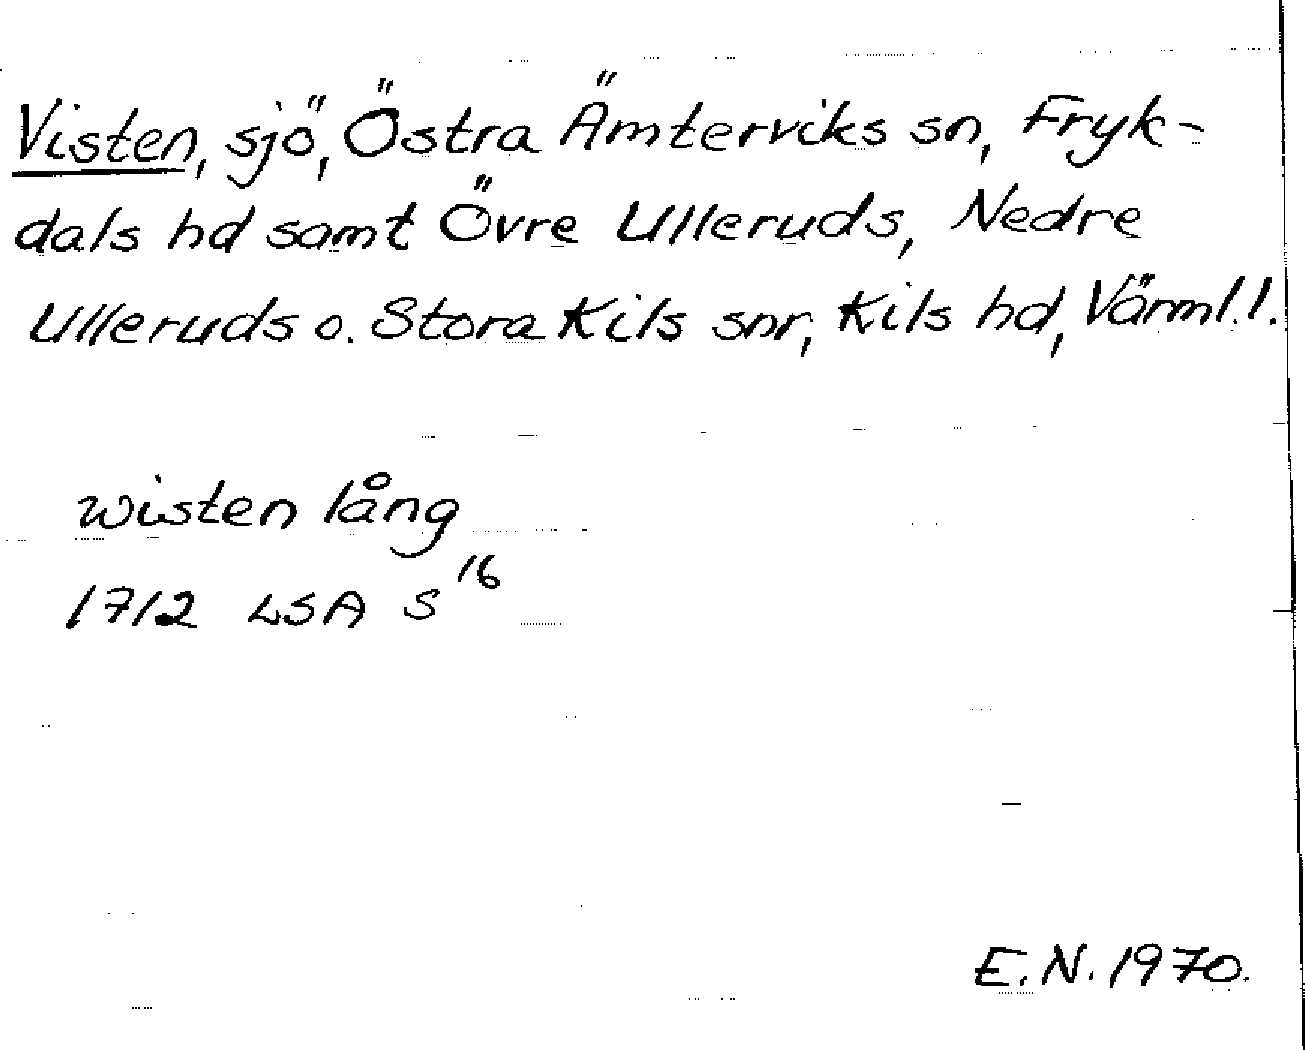 Visten, sjö, Östra Ämterviks sn, Fryk-
dals hd samt Övre Ulleruds, Nedre
Ulleruds o. Stora Kils snr, Kils hd, Värml.l.
wisten lång
1712 LSA S 16
E.N. 1970.